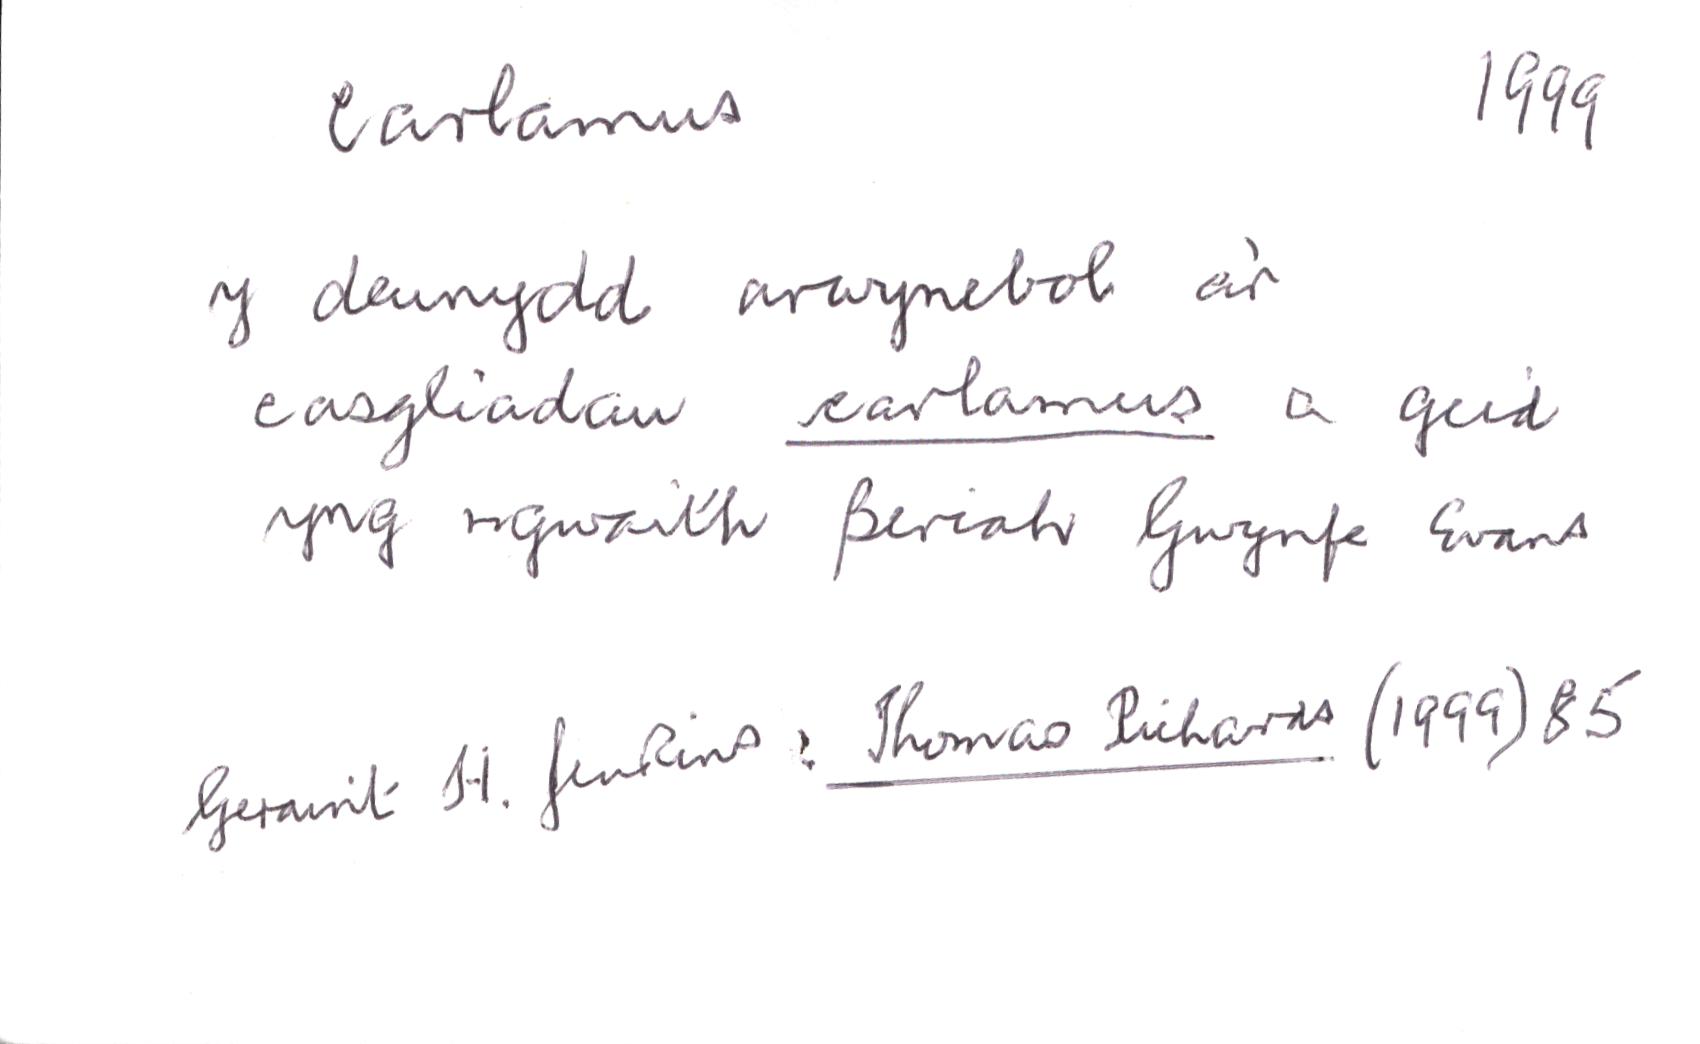 carlamus 1999
y deunydd arwynebol a'r
casgliadau carlamus a geid
yng ngwaith Beriah Gwynfe Evans
Geraint H. Jenkins : Thomas Richards (1999) 85